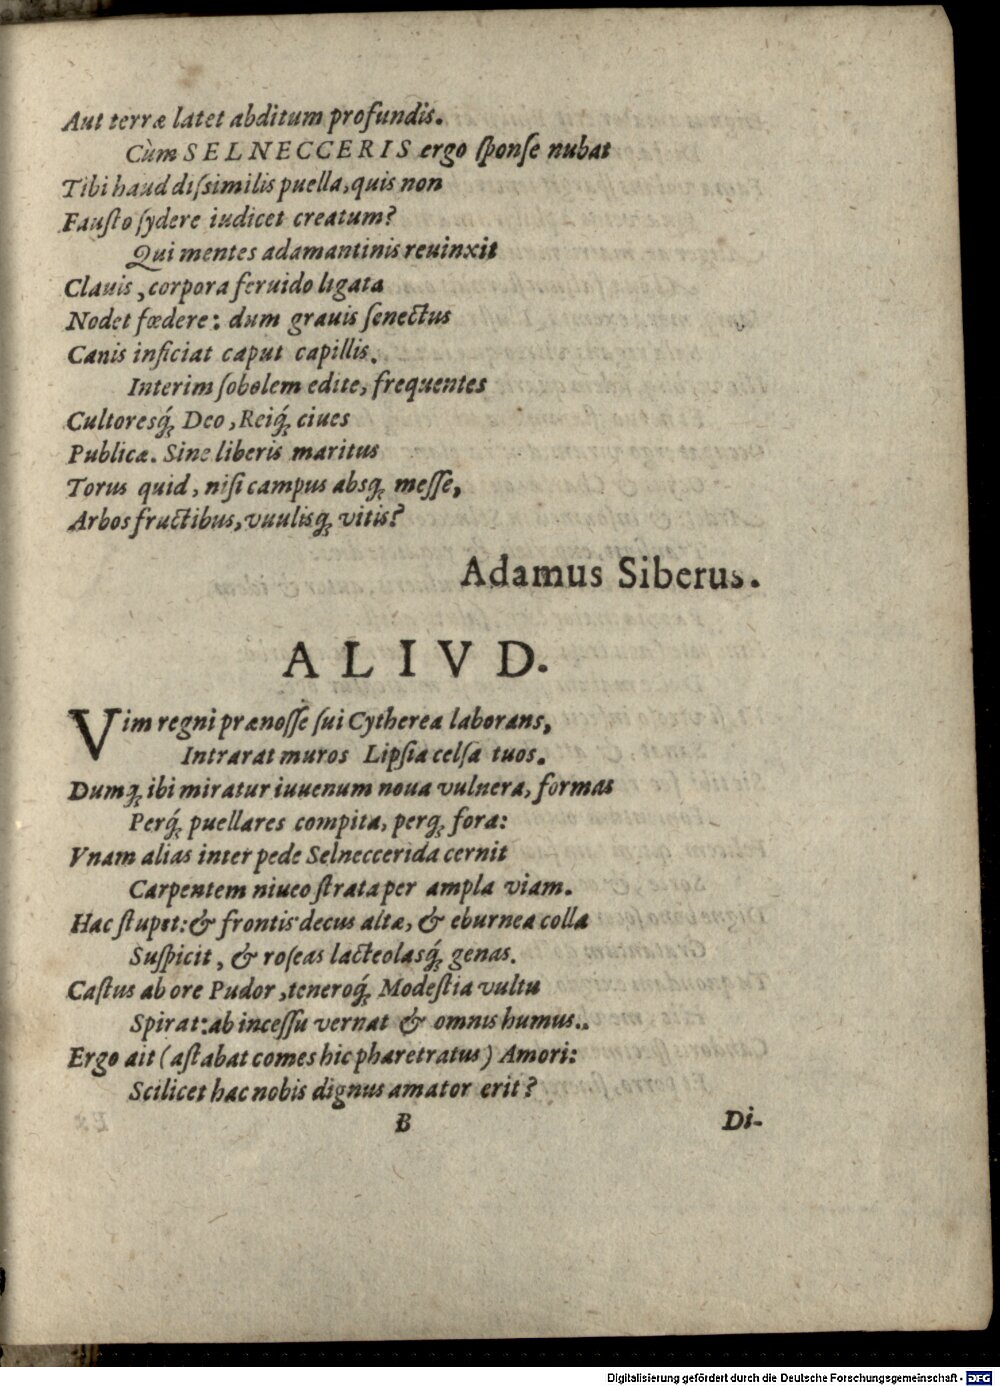 Aut terræ latet abditum profundis.
Cùm SELNECCERIS ergo ſponſe nubat
Tibi haud diſsimilis puella, quis non
Fauſto ſydere iudicet creatum?
Qui mentes adamantinis reuinxit
Clauis, corpora feruido ligata
Nodet fœdere: dum grauis ſenectus
Canis inficiat caput capillis.
Interim ſobolem edite, frequentes
Cultoresq́; Deo, Reiq́; ciues
Publicæ. Sine liberis maritus
Torus quid, niſi campus absq; meſſe,
Arbos fructibus, vuulisq; vitis?
Adamus Siberus.
ALIVD.
Vim regni prænoſſe ſui Cytherea laborans,
Intrarat muros Lipſia celſa tuos.
Dumq; ibi miratur iuuenum noua vulnera, formas
Perq́; puellares compita, perq; fora:
Vnam alias inter pede Selneccerida cernit
Carpentem niueo ſtrata per ampla viam.
Hac ſtupet: & frontis decus altæ, & eburnea colla
Suſpicit, & roſeas lacteolasq́; genas.
Caſtus ab ore Pudor, teneroq́; Modeſtia vultu
Spirat: ab inceſſu vernat & omnis humus..
Ergo ait (aſtabat comes hic pharetratus) Amori:
Scilicet hac nobis dignus amator erit?
B Di-
Digitalisierung gefördert durch die Deutsche Forschungsgemeinschaft - DFG